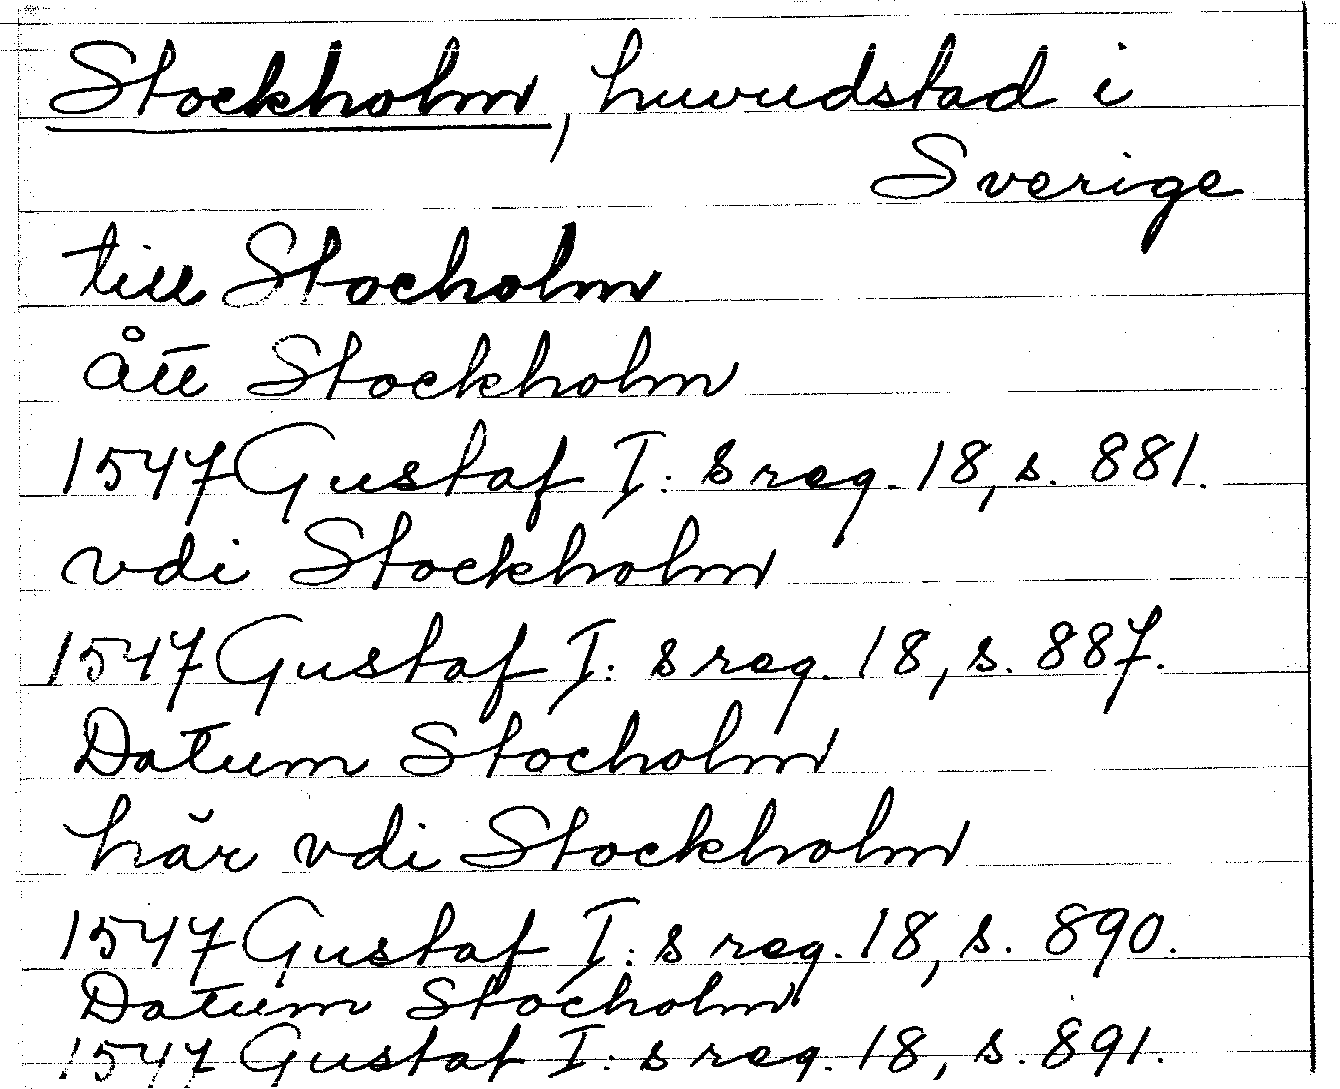 Stockholm, huvudstad i
Sverige
till Stocholm
ått Stockholm
1547 Gustaf I:s reg. 18, s. 881.
vdi Stockholm
1547 Gustaf I:s reg. 18, s. 887.
Datum Stocholm
hăr vdi Stockholm
1547 Gustaf I:s reg. 18, s. 890.
Datum Stocholm
1547 Gustaf I:s reg. 18, s. 891.